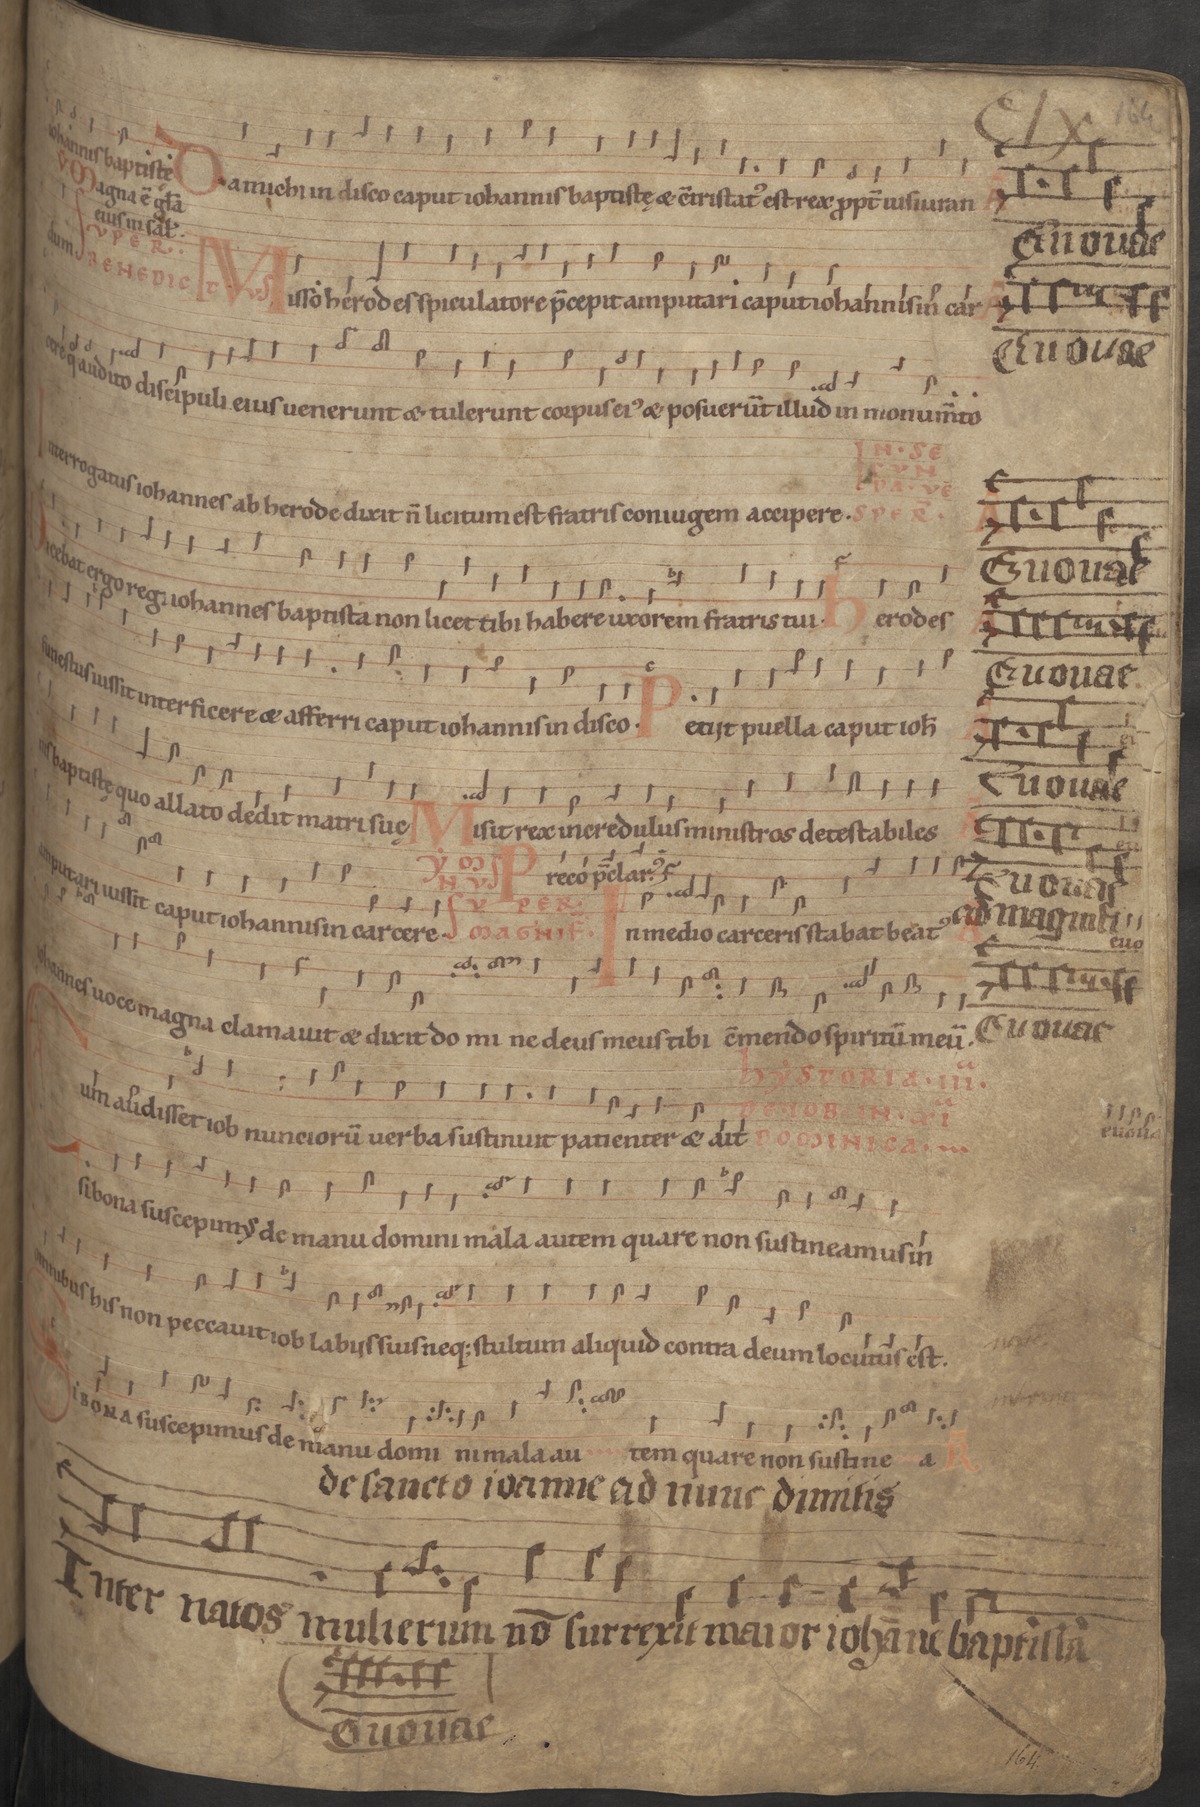 Clx 164
iohannis baptiste D a michi in disco caput iohannis baptistę & c̄tristat᾽ est rex ꝓpt̄ iusiuran
V Magna ē gl̄a
eius in sal̄.
Euouae
dum SVPER BENEDICTVS Misso herodes spiculatore p̄cepit amputari caput iohannis in car
Euouae
cere q̇ audito discipuli eius uenerunt & tulerunt corpus ei᾽ & posuerūt illud in monum̄to
Interrogatus iohannes ab herode dixit n̄ licitum est fratris coniugem accipere. IN SECVNDA VESPER.
Euouae
Dicebat ergo regi iohannes baptista non licet tibi habere uxorem fratris tui. Herodes
Euouae
funestus iussit interficere & afferri caput iohannis in disco. Petijt puella caput ioh̄
Euouae
nis baptistę quo allato dedit matri suę Misit rex incredulus ministros detestabiles
Euouae
YMNVS Preco p̄clar᾽ s̄
amputari iussit caput iohannis in carcere. SVPER MAGNIF. In medio carceris stabat beat᾽
ad magnifi
euo
iohannes uoce magna clamauit & dixit do mi ne deus meus tibi c̄mendo spiritū meū.
Euouae
HYSTORIA.
DE IOB IN
DOMINICA
Cum audisset iob nunciorū uerba sustinuit patienter & ait
euoua
si bona suscepimus de manu domini mala autem quare non sustineamus in
omnibus his non peccauit iob labijs suis neq; stultum aliquid contra deum locutus est.
SI BONA suscepimus de manu domi ni mala au tem quare non sustine a R
de sancto ioanne ad nunc dimitis
Inter natos mulierum nō surrexit maior iohāne baptista
Euouae
164